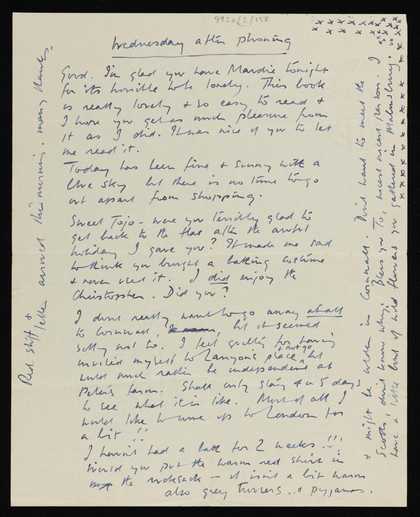 9920/2/158
Wednesday after phoning
Good. I'm glad you have Mardie tonight
for its horrible to be lonely. This book
is really lovely & so easy to read &
I hope you get as much pleasure from
it as I did. It was nice of you to let
me read it.
Today has been fine & sunny with a
blue sky but there is no time to go
out apart from shopping.
Sweet Jojo - were you terribly glad to
get back to the flat after the awful
holiday I gave you? It made me sad
to think you bought a bathing costume
& never used it. I did enjoy the
Christopher. Did you?
I don't really want to go away at all
to Cornwall, but it seemed
silly not to. I feel guilty for having
invited myself to Lanyon's place & not go, but
would much rather be independent at
Peter's farm. Shall only stay 4 or 5 days
to see what it is like. Most of all I
would like to come up to London for
a bit !!
I haven't had a bath for 2 weeks !!!
Would you put the warm red shirt in
the rucksack - it isn't a bit warm
also grey trousers & pyjamas.
& might be colder in Cornwall. Don't want to meet the
Scotts don't know why. Bless you Jo, nicest nicest person. I
have a little bowl of wild flowers you gathered in Malmsbury.
Red shirt &
letter arrived this morning. many thanks.
x x x x x x